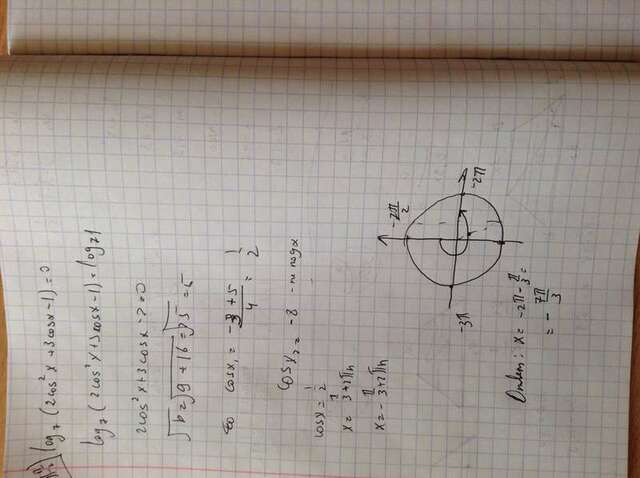 log₇(2cos²x+3cosx-1)=0
log₇(2cos²x+3cosx-1)=log₇1
2cos²x+3cosx-2=0
√D=√9+16=√25=5
cosx₁= (-3+5)/4 = 1/2
cosx₂= -8 -не подх
cosx=1/2
x=π/3+2πn
x=-π/3+2πn
-3π
-2π
-7π/2
Ответ: x=-2π-π/3=
=-7π/3